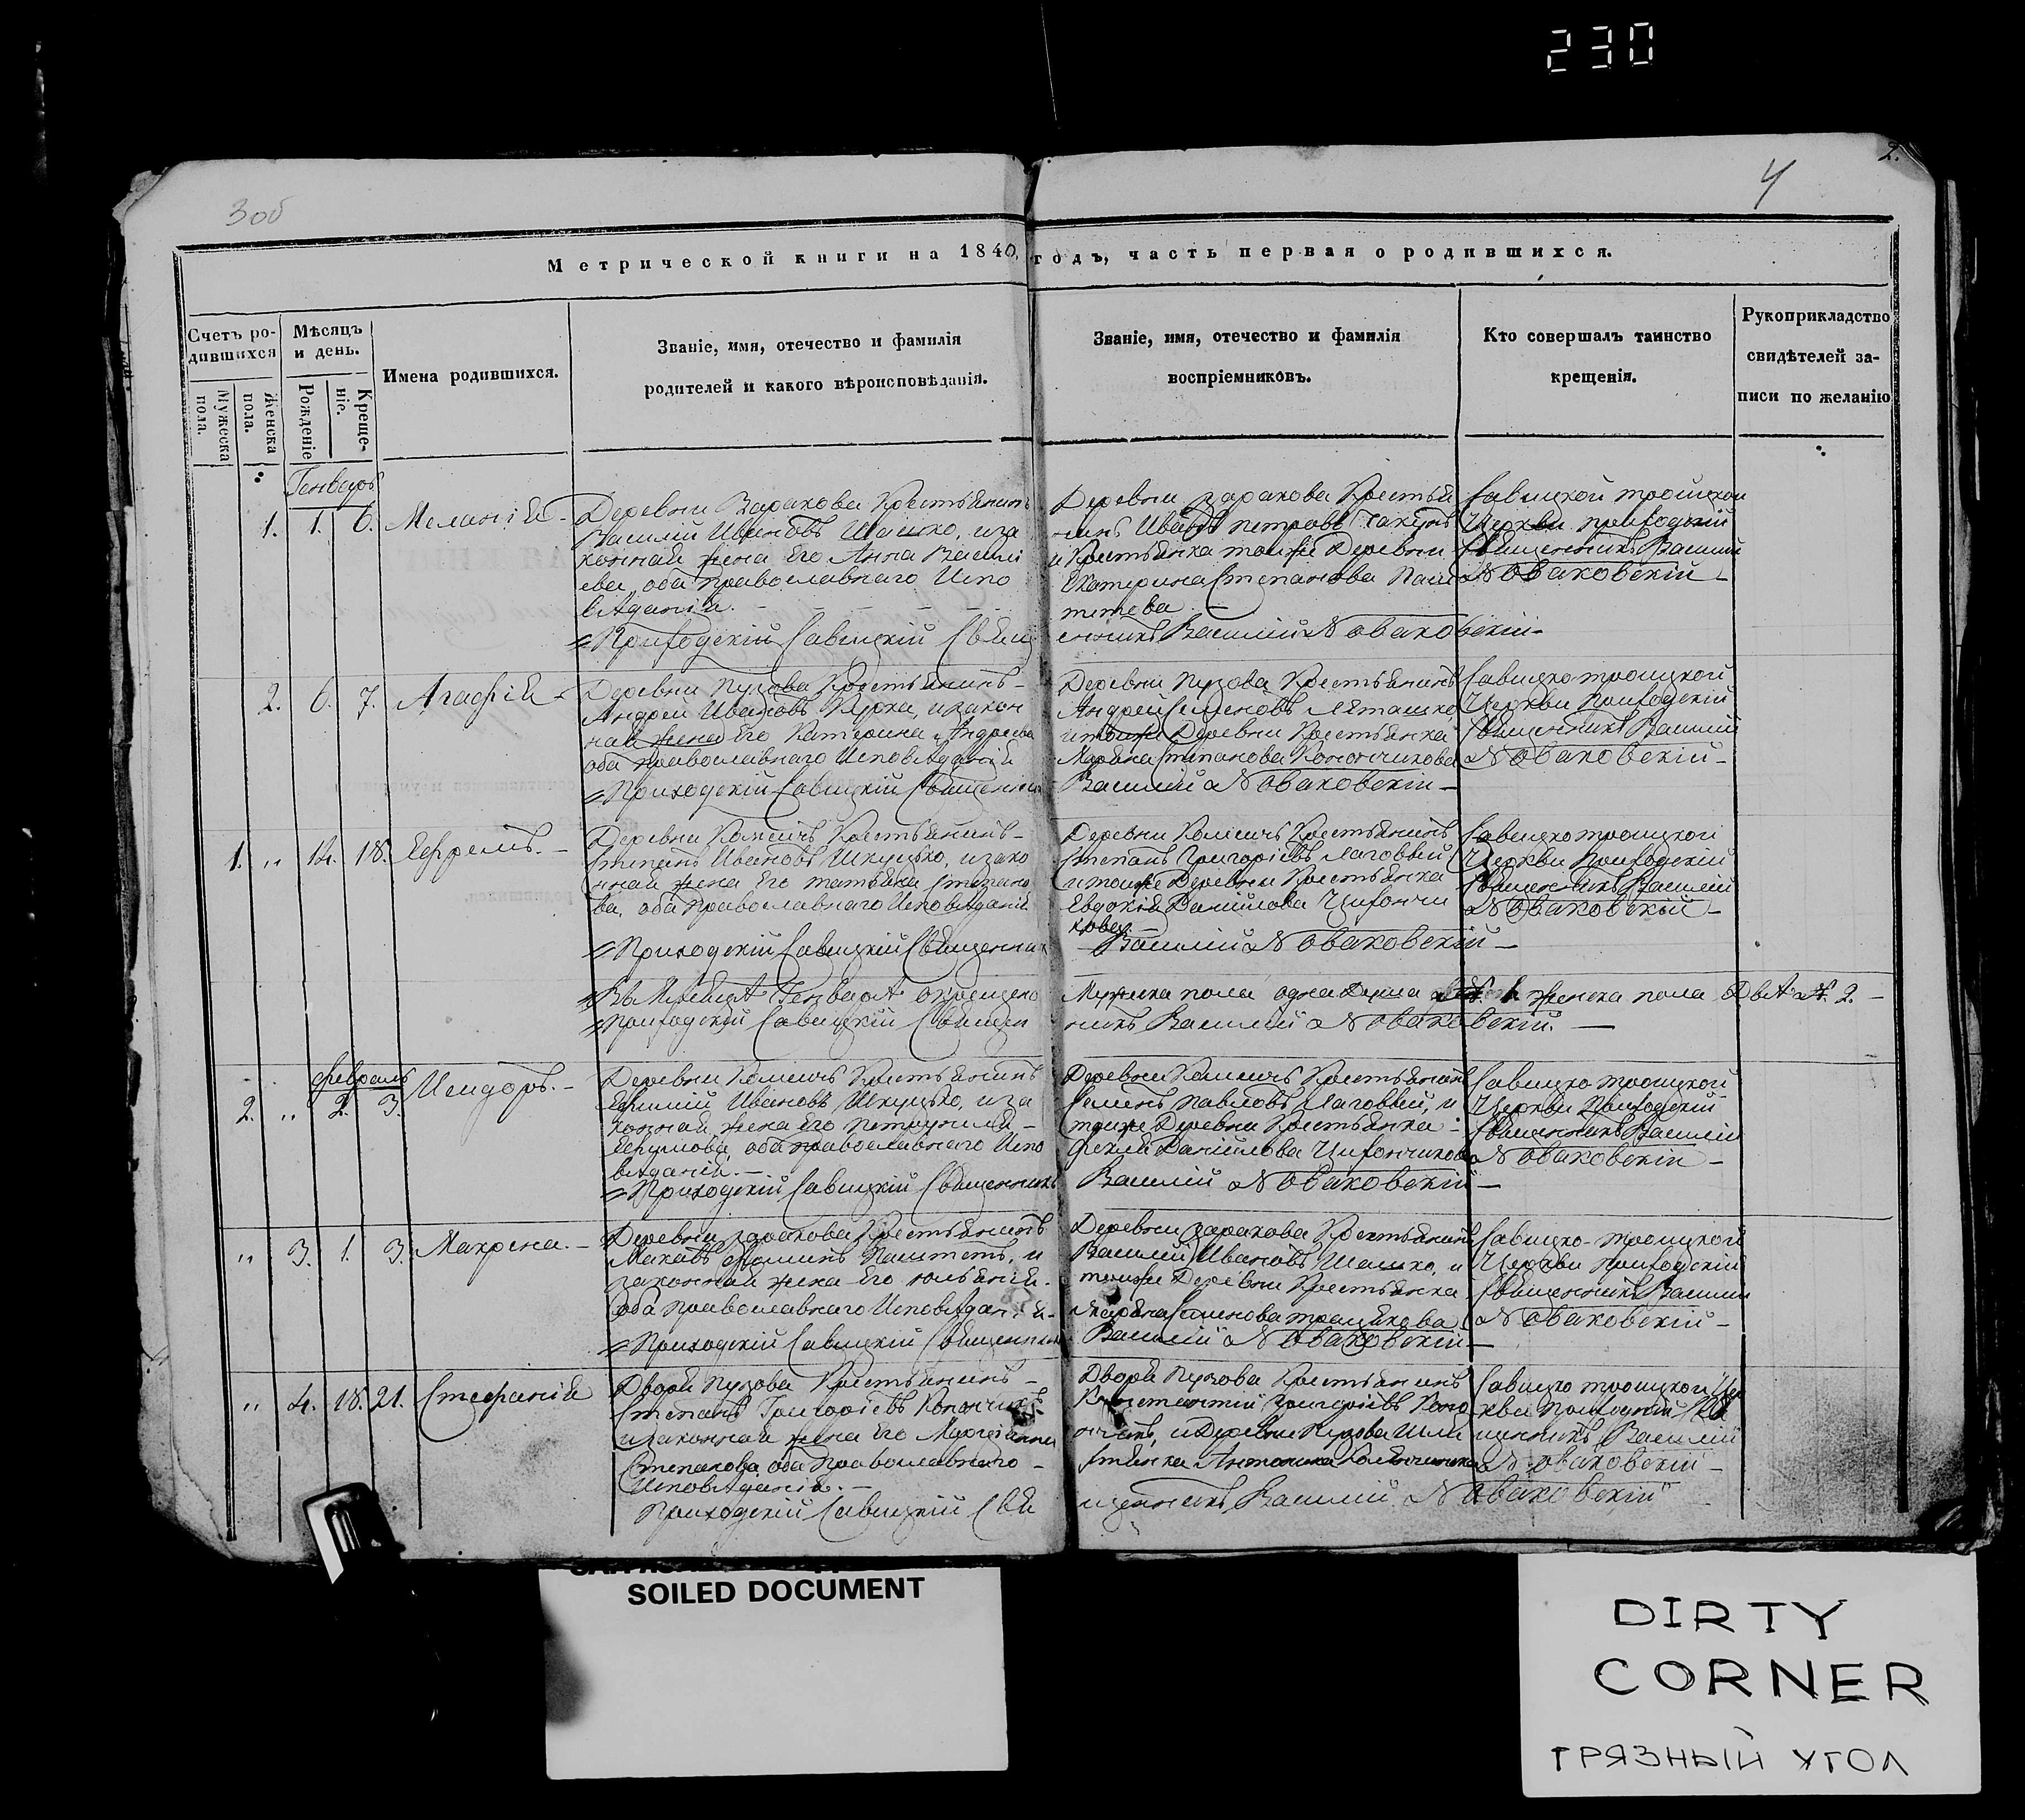 230
3 об
4
2.
Метрической книги на 1840 годъ, часть первая о родившихся.
Счетъ ро-
дившихся
Мужеска
пола.
Женска
пола.
Мѣсяцъ
и день.
Рожденіе
Креще-
ніе.
Имена родившихся.
Званіе, имя, отечество и фамилія
родителей и какого вѣроисповѣданія.
Званіе, имя, отечество и фамилія
воспріемниковъ.
Кто совершалъ таинство
крещенія.
Рукоприкладство
свидѣтелей за-
писи по желанію
Генварь
1. 1. 6. Меланія
Деревни Заракова Крестьянинъ
Василій Ивановъ Шашко, и за
конная жена Его Анна Васили
ева, оба православнаго Испо
вѣданія.
Приходскій Савицкій Свящ
Деревни Заракова Крестья
нинъ Иванъ Петровъ
и Крестьянка тойже Деревни
Екатерина Степанова Паш
тетова
енникъ Василій Новаковскій
Савицкой троицкой
Церкви приходскій
Священникъ Василій
Новаковскій
2. 6. 7. Агафія
Деревни Пузова Крестьянинъ
Андрей Ивановъ и закон
ная жена Его Катерина Андреева
оба православнаго Исповѣданія
Приходскій Савицкій Священникъ
Деревни Пузова Крестьянинъ
Андрей Семеновъ
и тойже Деревни Крестьянка
Марьяна Степанова Конончикова
Василій Новаковскій
Савицко троицкой
Церкви Приходскій
Священникъ Василій
Новаковскій
1. „ 14. 18. Ефремъ.
Деревни Крестьянинъ
Степанъ Ивановъ Шкуцько, и зако
нная жена Его татьяна Степано
ва, оба православнаго Исповѣданія
Приходскій Савицкій Священникъ
Деревни Крестьянинъ
Степанъ Григоріевъ Лаговвый
и тойже Деревни Крестьянка
Евдокія Данилова
Василій Новаковскій
Савицко троицкой
Церкви Приходскій
Священникъ Василій
Новаковскій
Въ Мѣсяцѣ Генварѣ окрещено
Мужеска пола одна Душа 1. женска пола Двѣ 2.
приходскій Савицкій Священ
никъ Василій Новаковскій.
февраль
2. „ 2. 3. Исидоръ.
Деревни Крестьянинъ
Ивановъ Шкуцько, и за
конная жена Его Петрунеля
оба православнаго Испо
вѣданія.
Приходскій Савицкій Священникъ
Деревни Крестьянинъ
Семенъ Павловъ Лаговвый, и
тойже Деревни Крестьянка
Фекла Данилова
Василій Новаковскій
Савицко троицкой
Церкви Приходскій
Священникъ Василій
Новаковскій
„ 3. 1. 3. Макрена.
Деревни Заракова Крестьянинъ
Паштетъ, и
законная жена Его Юльянія.
оба православнаго Исповѣданія
Приходскій Савицкій Священникъ
Деревни Заракова Крестьянинъ
Василій Ивановъ Шашко, и
тойже Деревни Крестьянка
Марьяна Семенова
Василій Новаковскій
Савицко-троицкой
Церкви приходскій
Священникъ Василій
Новаковскій
„ 4. 18. 21. Стефанія
Двора Пузова Крестьянинъ
Степанъ Григоріевъ Конончикъ
и законная жена Его Марціанна
Степанова, оба православнаго
Исповѣданія.
Приходскій Савицкій Свя
Двора Пузова Крестьянинъ
Константій Григоріевъ Коно
нчикъ, и Деревни Пузова Шля
хтянка Антонина
щенникъ Василій Новаковскій
Савицко троицкой Це
ркви Приходскій Свя
щенникъ Василій
Новаковскій
SOILED DOCUMENT
DIRTY
CORNER
ГРЯЗНЫЙ УГОЛ